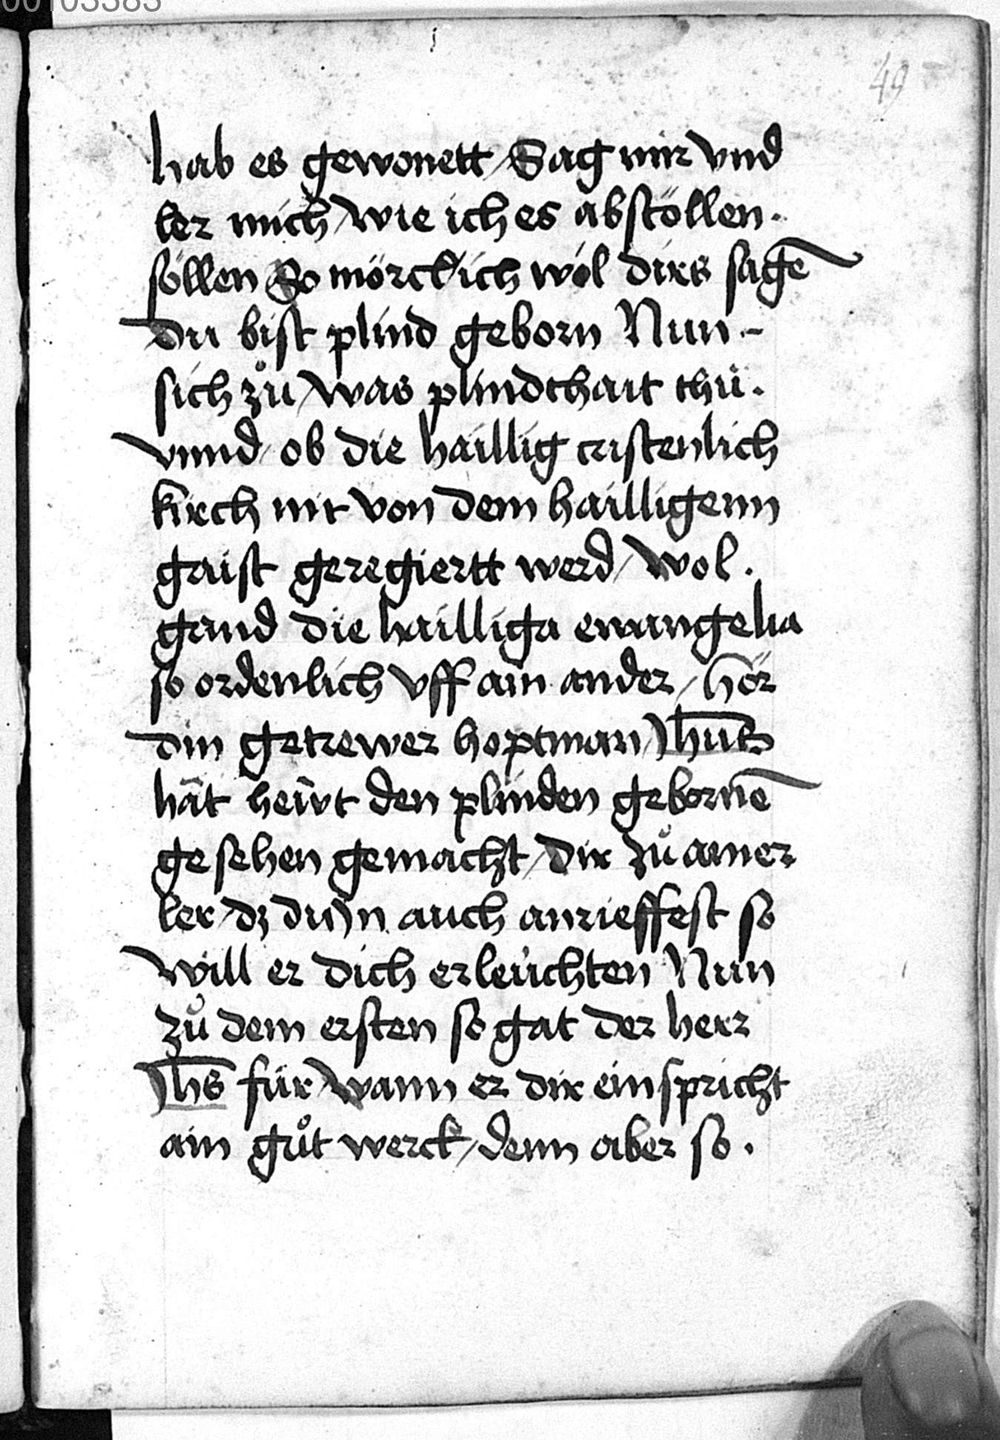 00103383
49
hab es gewonett / Sag mir vnd
ler mich / wie ich es abstöllen.
söllen So mörck ich wöl dirs sagē
du bist plind geborn Nun -
sich zů / was plindthait thü.
vnnd / ob die haillig cristenlich
kirch nit von dem hailligenn
gaist geregiertt werd / wol.
gand die hailliga ewangelia
so ordenlich vff ain ander / hör
din getrewer hoptman Jhūs
hāt heẅt den plinden gebornē
gesehen gemacht / dir zů ainer
ler / dz du jn auch anrieffest so
will er dich erleüchten Nun
zů dem ersten so gat der herr
Jhs für / wann er dir einspricht
ain gůt werck / denn aber so.